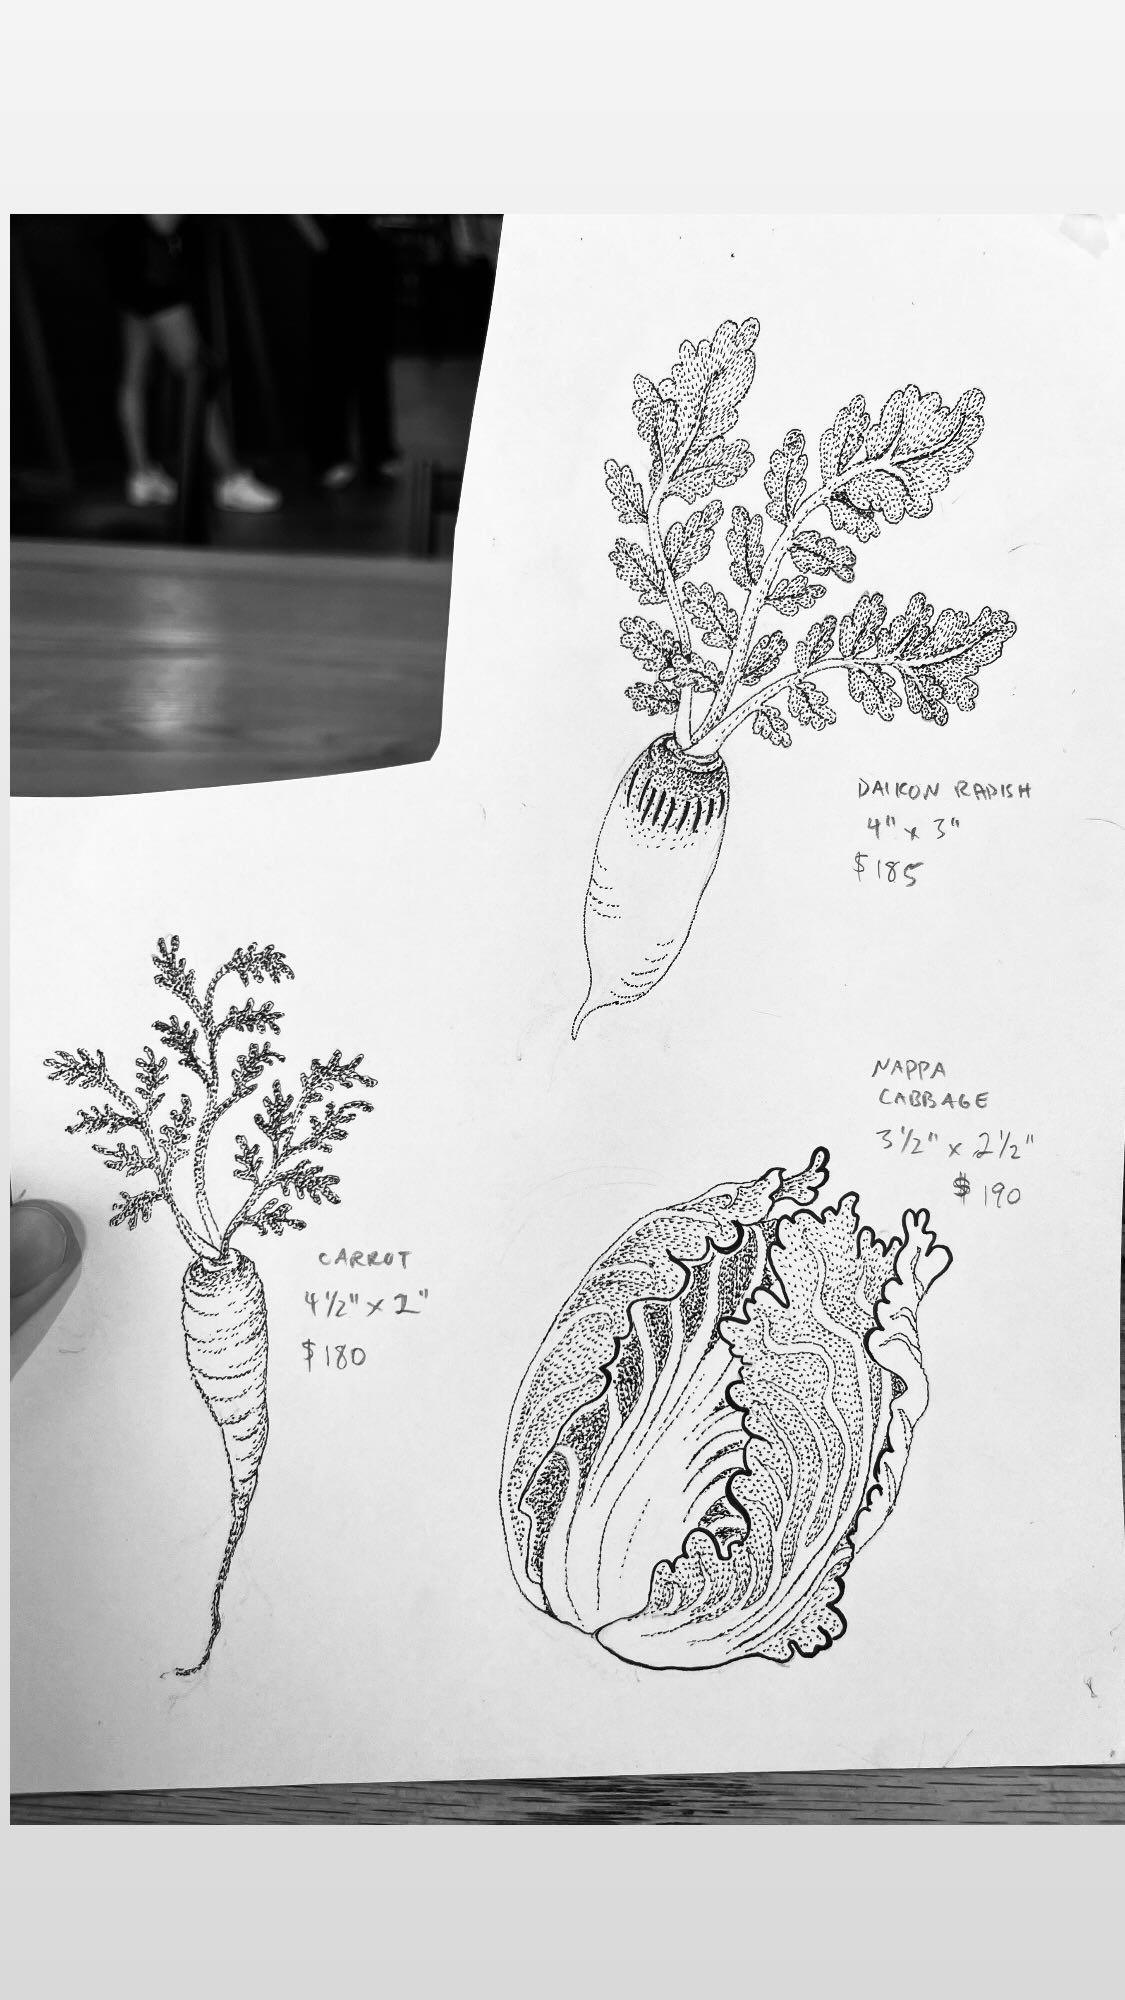 DAIKON RADISH
4" x 3"
$185
NAPPA
CABBAGE
3 1/2" x 2 1/2"
$190
CARROT
4 1/2" x 2"
$180